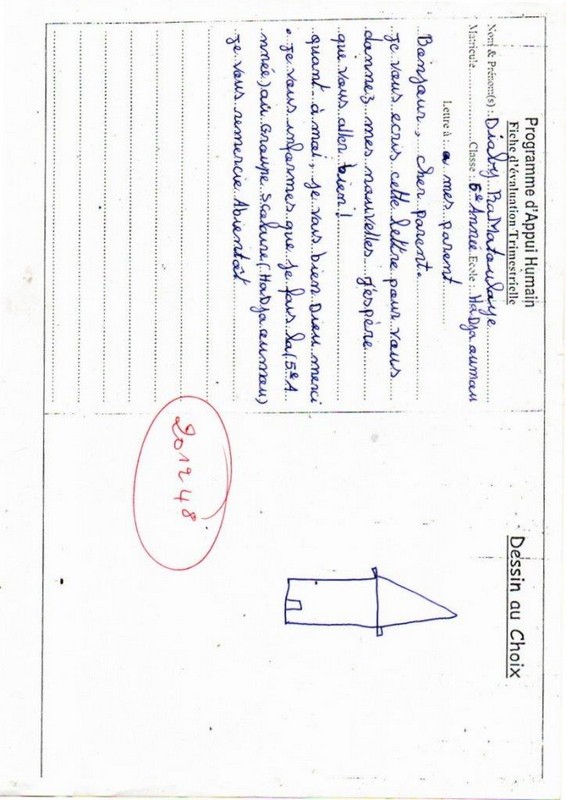 Programme d'Appui Humain
Fiche d'évaluation Trimestrielle
Nom & Prénom(s) : Diaby RaMatoulaye
Matricule Classe : 5e Annie Ecole : HaDja aumau
Lettre à : a mes parent
Bonjour, cher parent.
je vous ecris cette lettre pour vous
donnez mes nouvelles j'espère
que vous aller bien!
quant à moi, je vais bien Dieu merci
je vous informes que je fais la (5e A
nnée) au Groupe Scolaire (HaDja aumau)
je vous remercie Abientôt
Dessin au Choix
201248